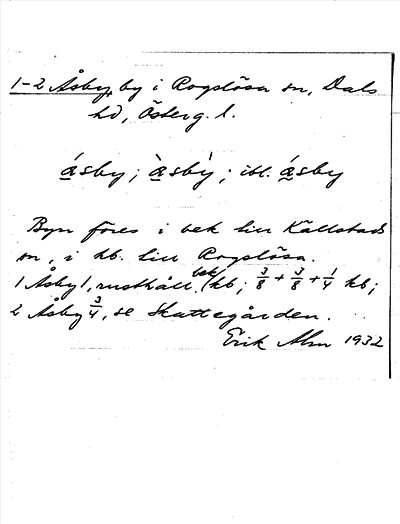 1-2 Åsby, by i Rogslösa sn, Dals
hd, Österg. l.
ásby; àsbỳ; ibl. ásby
Byn föres i bek till Källstads
sn, i kb. till Rogslösa.
1 Åsby 1, rusthåll. (bek, kb; 3/8 + 3/8 + 1/4 kb;
2 Åsby 3/4, se Skattegården.
Erik Alm 1932